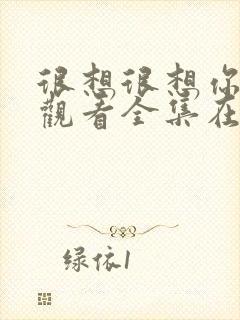 很想很想你
觀看全集在
绿依1